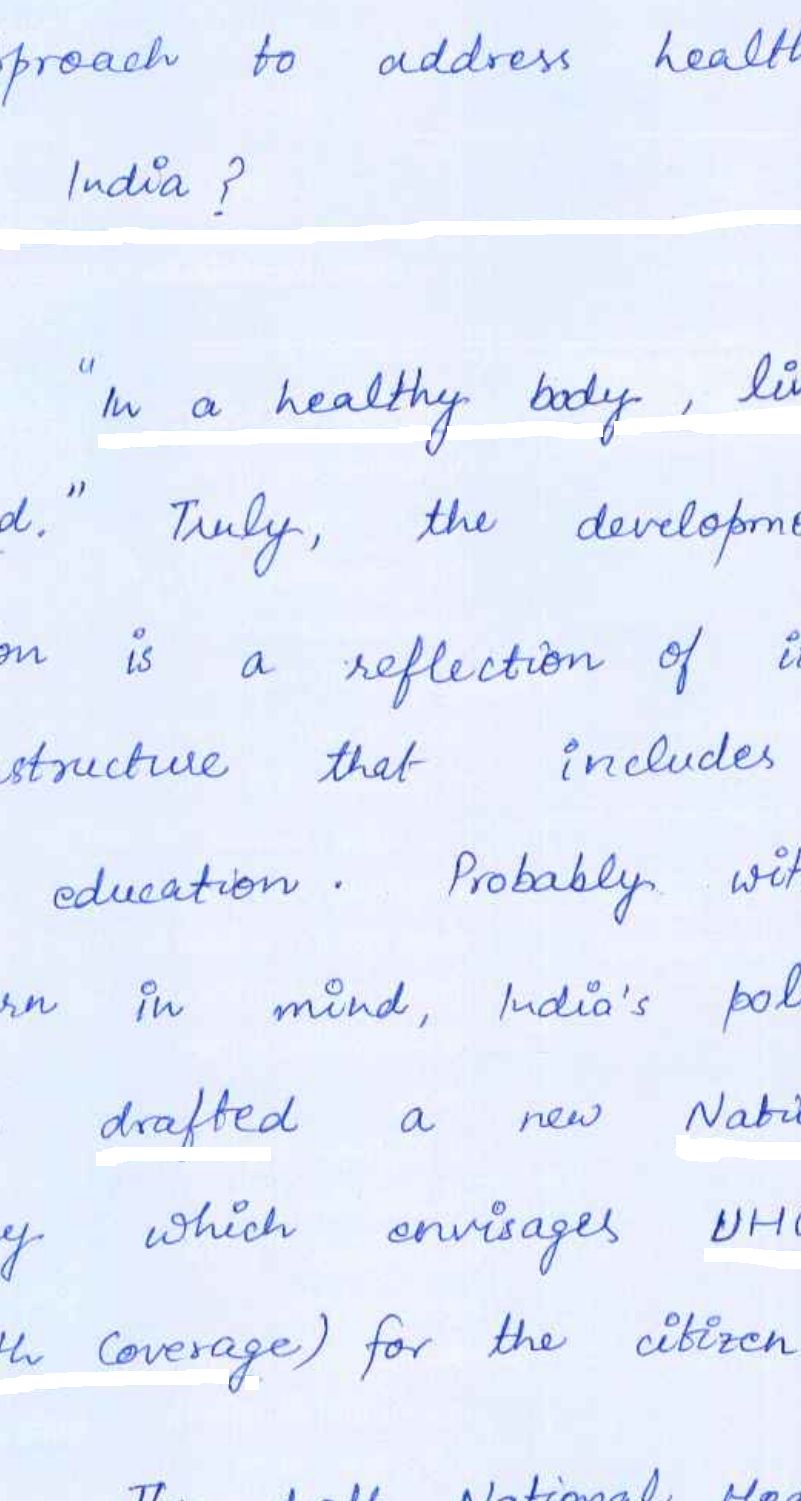 pproach to address health
India ?
"In a healthy body, li
d." Truly, the developme
on is a reflection of i
structure that includes
education. Probably wit
rn in mind, India's pol
drafted a new Nati
y which envisages UHC
th Coverage) for the citizen
National